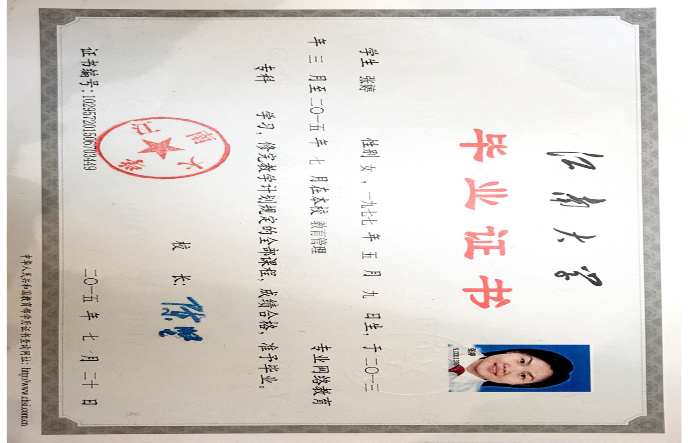 江南大学
毕业证书
张婷
学生 张婷 性别 女 ，一九七七 年 五 月 九 日生，于 二〇一三
年 三 月至 二〇一五 年 七 月在本校 教育管理 专业网络教育
专科 学习，修完教学计划规定的全部课程，成绩合格，准予毕业。
校 长：
江南大学
证书编号：102957201506703449
二〇一五 年 七 月 二十 日
中华人民共和国教育部学历证书查询网址：http://www.chsi.com.cn